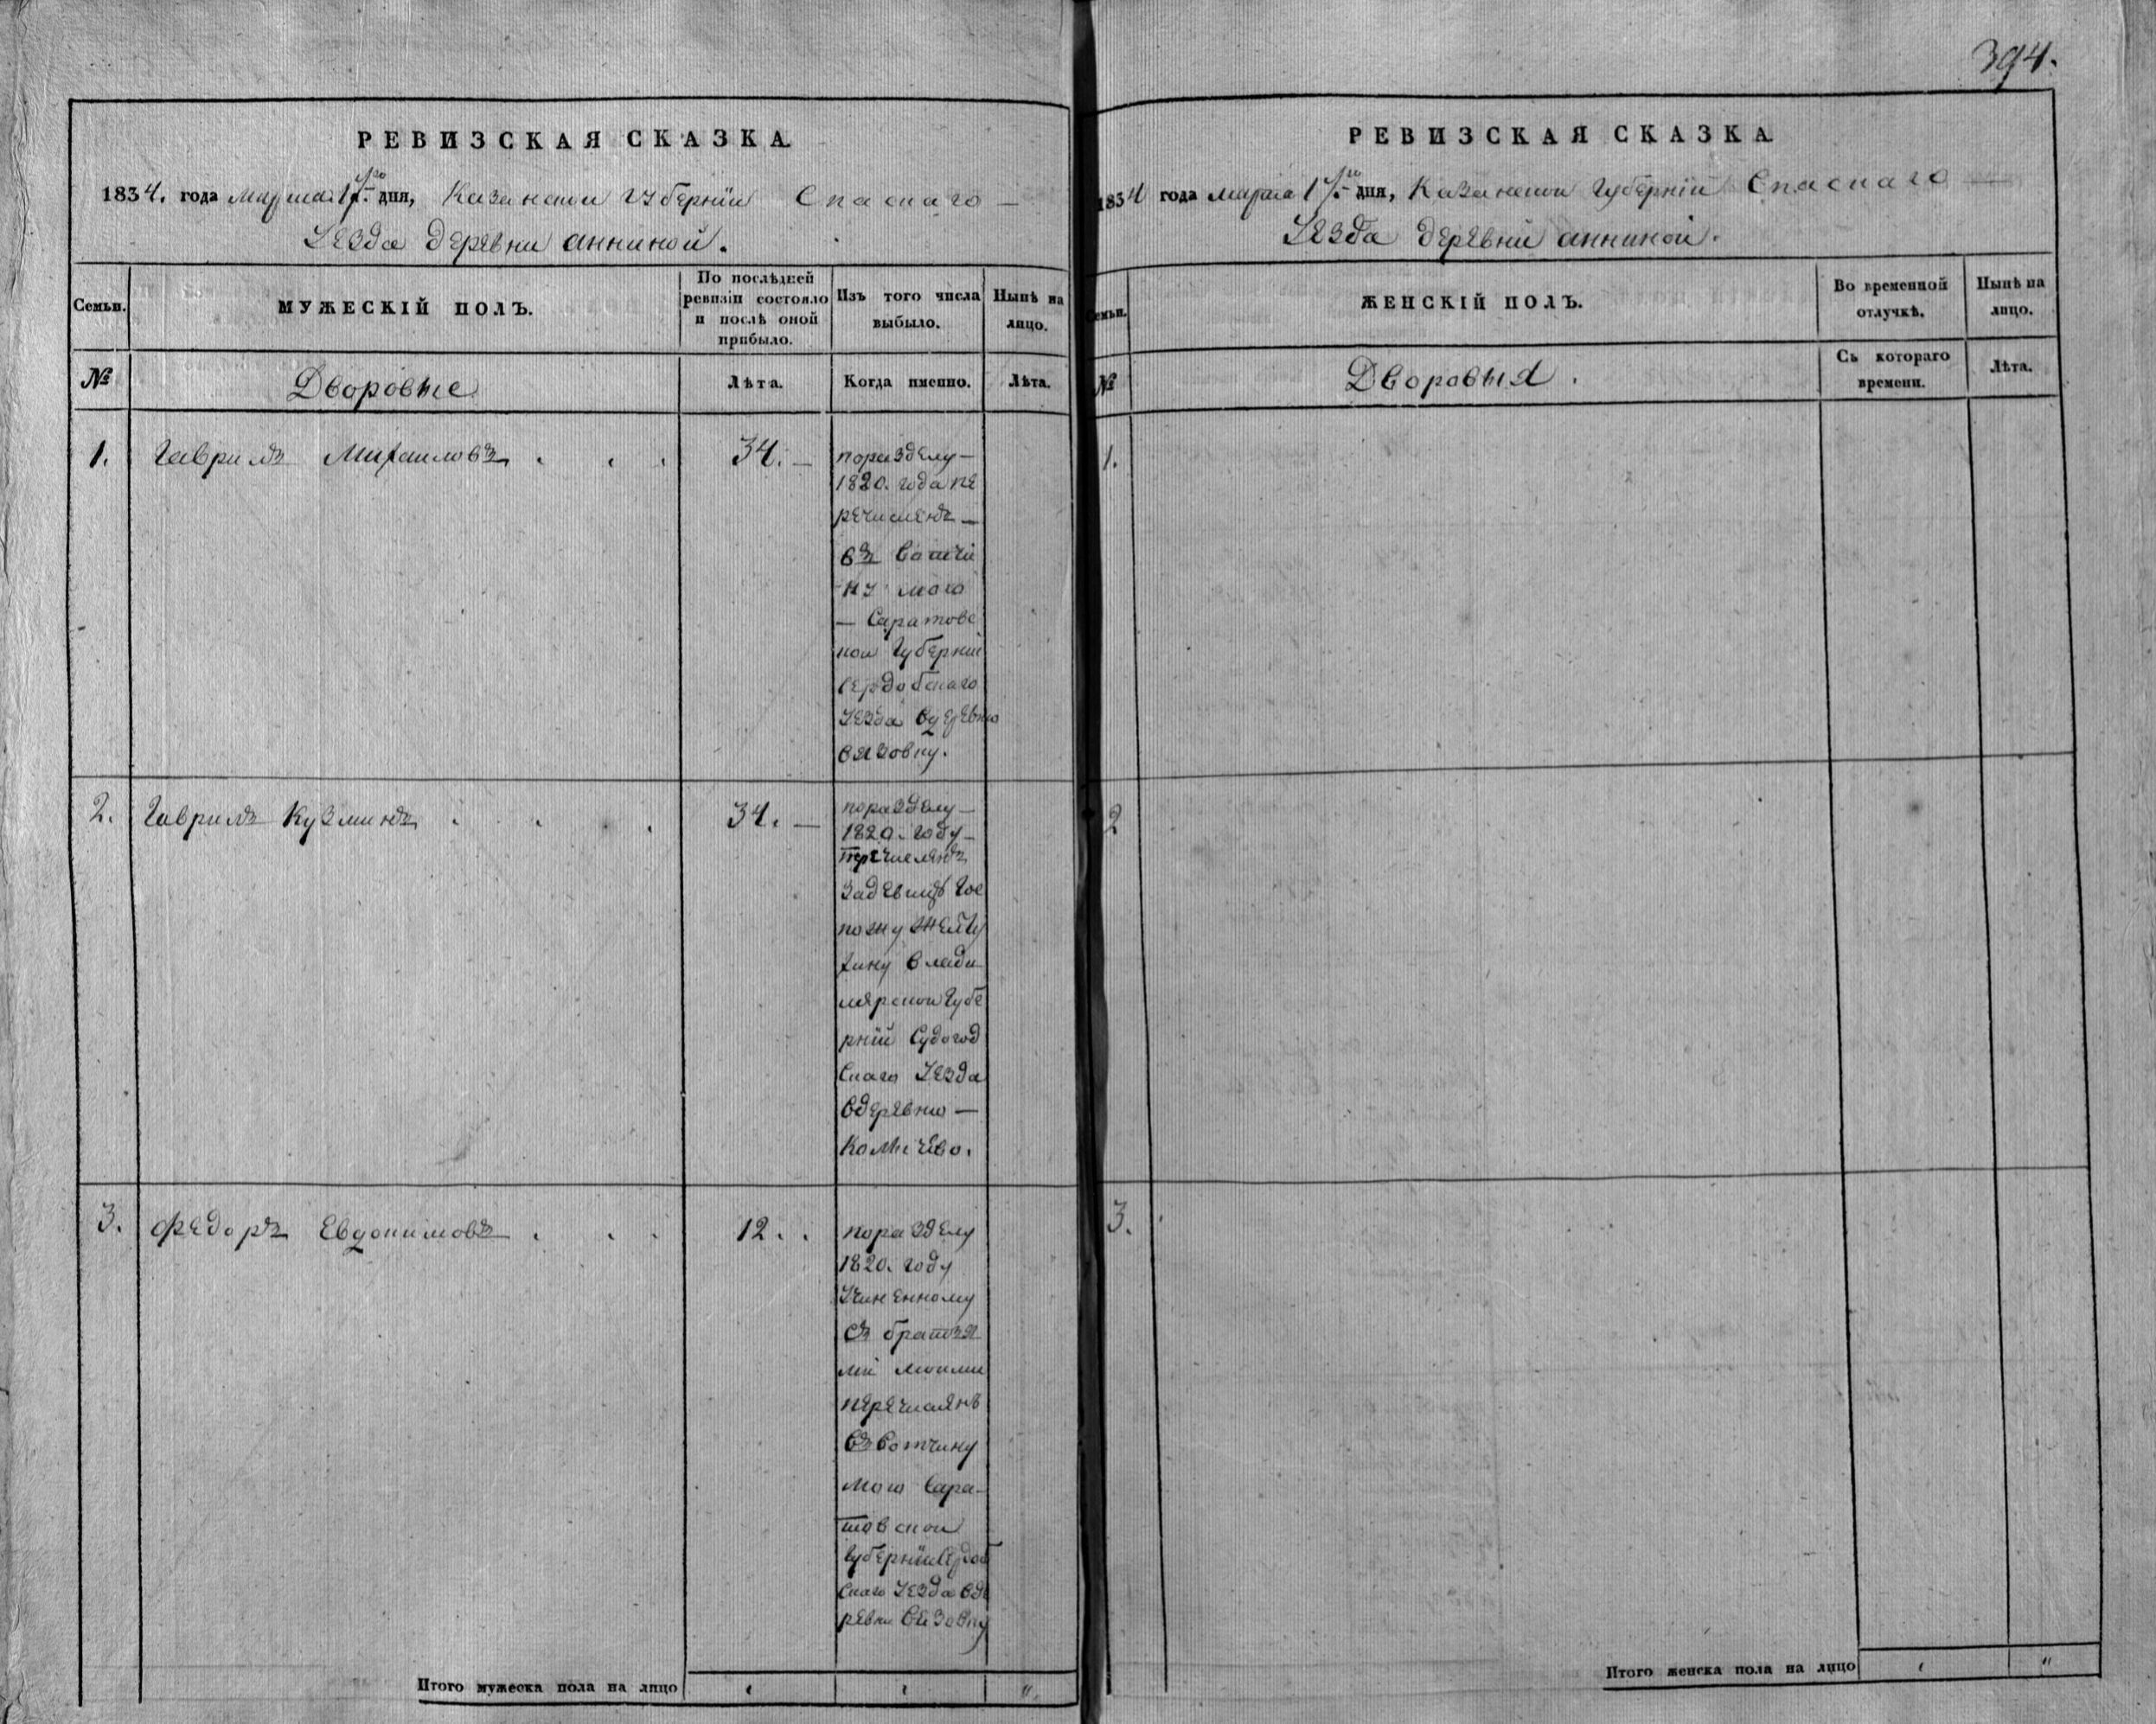 394.
РЕВИЗСКАЯ СКАЗКА.
1834. года марта 17го дня, Казанской губернїи Спаскаго —
уезда деревни анниной.
Семьи.
МУЖЕСКІЙ ПОЛЪ.
По послѣдней ревизіи состояло и послѣ оной прибыло.
Изъ того числа выбыло.
Нынѣ на лицо.
№
Дворовые
Лѣта.
Когда именно.
Лѣта.
1.
Гаврилъ Михаиловъ
34. —
поразделу —
1820. года пе
речисленъ —
въ вотчи
ну мою
— Саратовс
кой губернїи
Сердобскаго
уезда вдеревню
вязовку.
2.
Гаврилъ Кузминъ
34. —
поразделу —
1820. году —
перечисленъ
задевицу гос
пожу желту
хину влади
мерской губе
рнїи Судогод
скаго уезда
вдеревню —
3.
Федоръ Евдокимовъ
12.
поразделу
1820. году
учиненному
съ братья
ми моими
перечисленъ
въ вотчину
мою Сара-
товской
губернїи Сердоб
скаго уезда вде
ревню вязовку
Итого мужеска пола на лицо
РЕВИЗСКАЯ СКАЗКА.
1834 года марта 17го дня, Казанской губернїи Спаскаго —
уезда деревнй анниной.
Семьи.
ЖЕНСКІЙ ПОЛЪ.
Во временной отлучкѣ.
Нынѣ на лицо.
№
Дворовыя.
Съ котораго времени.
Лѣта.
1.
2
3.
Итого женска пола на лицо